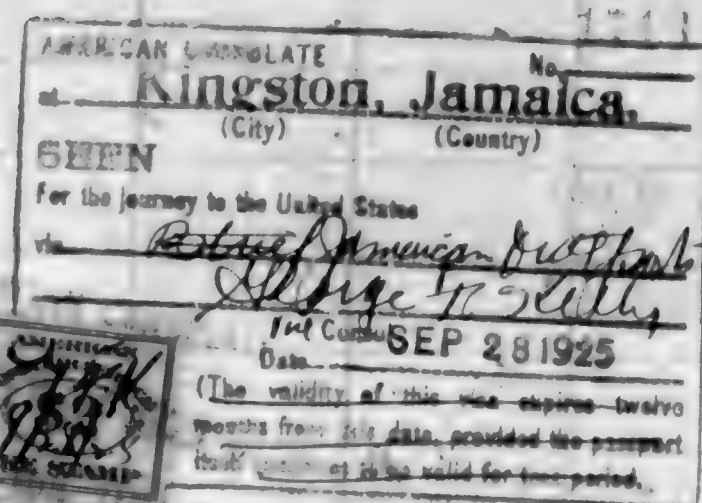 AMERICAN CONSULATE
No.
at Kingston, Jamaica.
(City) (Country)
SEEN
For the journey to the United States
via American
George Kelly
Consul
Date SEP 28 1925
(The validity of this visa expires twelve
months from this date, provided the passport
valid for that period.